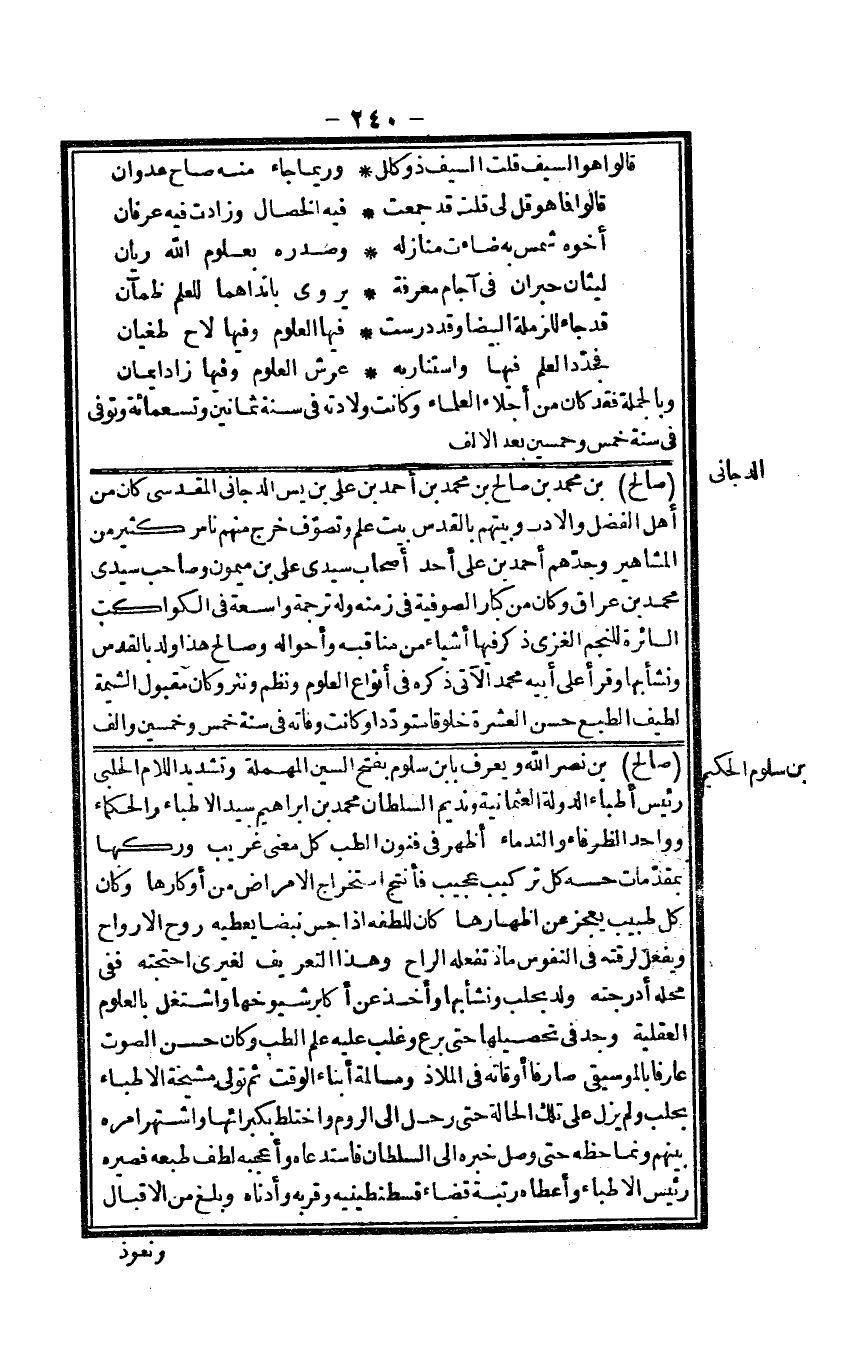 - ٢٤٠ -
قالوا هو السيف قلت السيف ذو كلل * وربما جاء منه صاح عدوان
قالوا فما هو قل لى قلت قد جمعت * فيه الخصال وزادت فيه عرفان
أخوه شمس به ضاءت منازله * وصدره بعلوم الله ريان
ليثان حبران فى آجام معرفة * يروى بانداهما للعلم ظمآن
قد جاء للرملة البيضا وقد درست * فيها العلوم وفيها لاح طغيان
فجدّد العلم فيها واستنار به * عرش العلوم وفيها زاد ايمان
وبالجملة فقد كان من أجلاء العلماء وكانت ولادته فى سنة ثمانين وتسعمائة وتوفى
فى سنة خمس وخمسين بعد الالف
الدجانى
(صالح) بن محمد بن صالح بن محمد بن أحمد بن على بن يس الدجانى المقدسى كان من
أهل الفضل والادب وبيتهم بالقدس بيت علم وتصوّف خرج منهم ناس كثير من
المشاهير وجدّهم أحمد بن على أحد أصحاب سيدى على بن ميمون وصاحب سيدى
محمد بن عراق وكان من كبار الصوفية فى زمنه وله ترجمة واسعة فى الكواكب
السائرة للنجم الغزى ذكر فيها أشياء من مناقبه وأحواله وصالح هذا ولد بالقدس
ونشأ بها وقرأ على أبيه محمد الآتى ذكره فى أنواع العلوم ونظم ونثر وكان مقبول الشيمة
لطيف الطبع حسن العشرة خلوقا متودّدا وكانت وفاته فى سنة خمس وخمسين وألف
بن سلوم الحكيم
(صالح) بن نصر الله ويعرف بابن سلوم بفتح السين المهملة وتشديد اللام الحلبى
رئيس أطباء الدولة العثمانية ونديم السلطان محمد بن ابراهيم سيد الاطباء والحكماء
وواحد الظرفاء والندماء أظهر فى فنون الطب كل معنى غريب وركبها
بمقدّمات حسه كل تركيب عجيب فأنتج استخراج الامراض من أوكارها وكان
كل طبيب يعجز عن اظهارها كان للطفه اذا جس نبضا يعطيه روح الارواح
ويفعل لرقته فى النفوس ما لا تفعله الراح وهذا التعريف لغيرى احتجته ففى
محله أدرجته ولد بحلب ونشأ بها وأخذ عن أكابر شيوخها واشتغل بالعلوم
العقلية وجد فى تحصيلها حتى برع وغلب عليه علم الطب وكان حسن الصوت
عارفا بالموسيقى صارفا أوقاته فى الملاذ ومسالمة أبناء الوقت ثم تولى مشيخة الاطباء
بحلب ولم يزل على تلك الحالة حتى رحل الى الروم واختلط بكبرائها واشتهر امره
بينهم ونما حظه حتى وصل خبره الى السلطان فاستدعاه وأعجبه لطف طبعه فصيره
رئيس الاطباء وأعطاه رتبة قضاء قسطنطينيه وقربه وأدناه وبلغ من الاقبال
ونعوذ